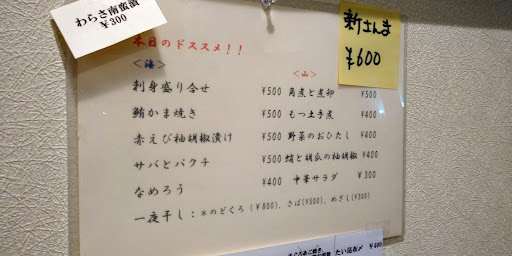 わらさ南蛮漬
¥300
新さんま
¥600
本日のドススメ!!
<海>
刺身盛り合せ ¥500
鮪かま焼き ¥500
赤えび柚胡椒漬け ¥500
サバとパクチ ¥500
なめろう ¥400
<山>
角煮と煮卵 ¥500
もつ土手煮 ¥400
野菜のおひたし ¥400
蛸と胡瓜の柚胡椒 ¥400
中華サラダ ¥300
一夜干し:*のどくろ(¥800)、さば(¥500)、めざし(¥300)
たい昆布〆 ¥400